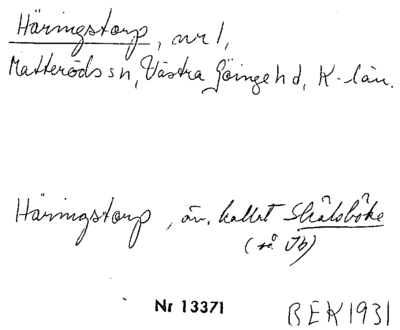 Häringstorp, nr 1,
Matteröds sn, Västra Göinge hd, K-län.
Häringstorp, äv. kallat Skålsböke
(så Jb)
Nr 13371 BEK 1931